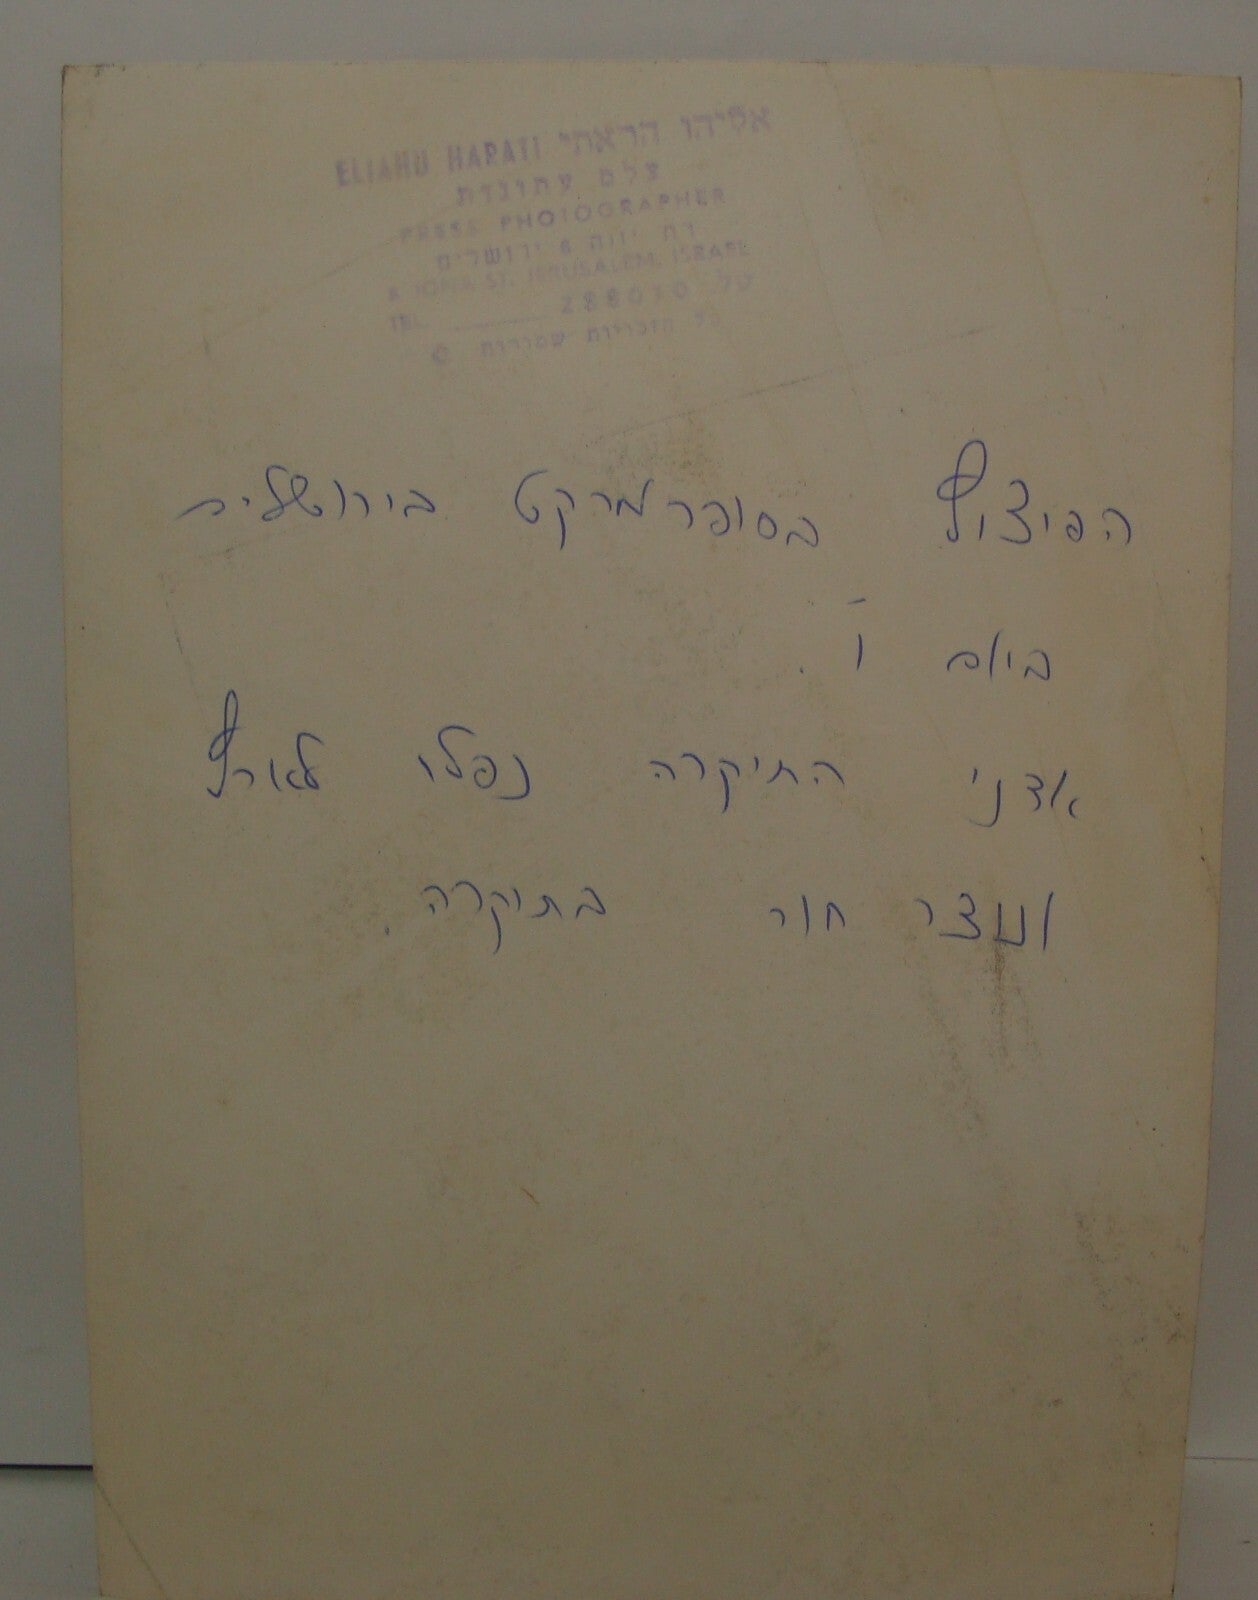 ELIAHU HARATI אליהו הראתי
צלם עתונות
PRESS PHOTOGRAPHER
רח יונה 6 ירושלים
6 IONA ST. JERUSALEM, ISRAEL
TEL. 288070 טל
© כל הזכויות שמורות
הפיצוץ בסופרמרקט בירושלים
ביום ו.
אדני התיקרה נפלו לארץ
ונוצר חור בתיקרה.